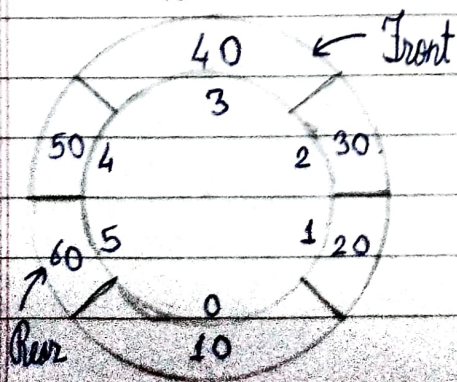 40 Front
3
50 4 2 30
60 5 1 20
0
Rear 10